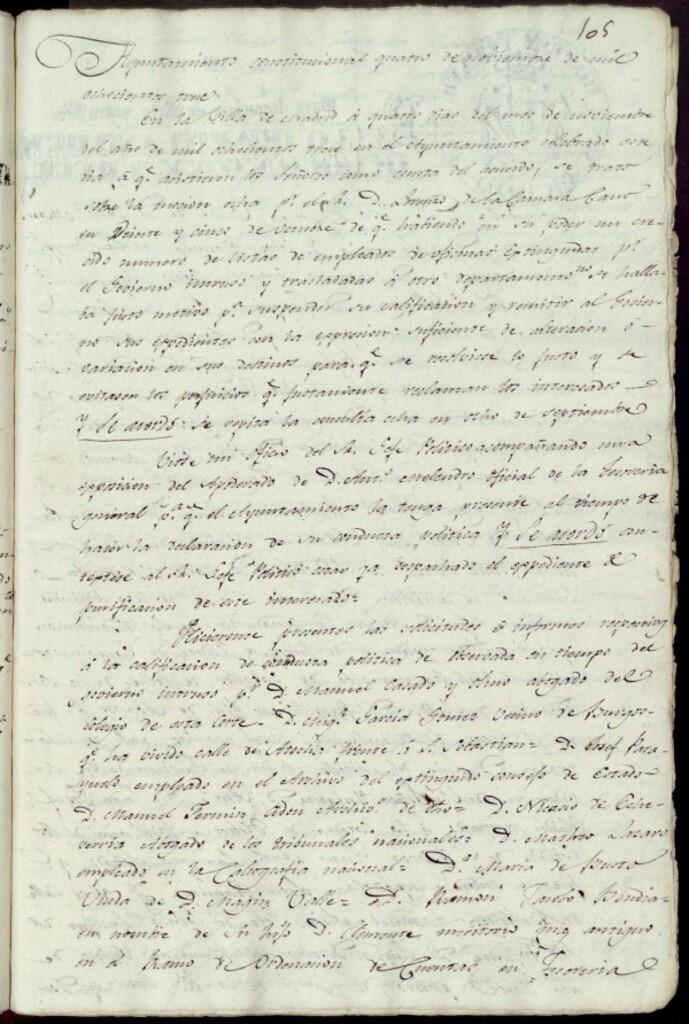 105
Ayuntamiento constitucional quatro de Noviembre de mil
ochocientos trece
En la Villa de Madrid á quatro dias del mes de noviembre
del año de mil ochocientos trece en el Ayuntamiento celebrado este
dia á q.e asistieron los Señores como consta del acuerdo, se trató
sobre la mocion echa p.r el S.r D. de la Camara Cano
en Veinte y cinco de Octubre de q.e habiendo en su poder un cre-
cido numero de listas de empleados de oficinas extinguidas p.r
el Govierno intruso y trasladadas á otro departamento se halla-
ba justo motivo p.a suspender su calificacion y remitir al Govier-
no sus expedientes con la expresion suficiente de alteracion ó
variacion en sus destinos para q.e se resolviese lo justo y se
evitasen los perjuicios q.e justamente reclaman los interesados
Y Se acordó: se repita la consulta echa en ocho de septiembre
Viose un Oficio del Sr. Gefe Politico acompañando una
exposicion del Apoderado de D. Ant.o Melendro Oficial de la Tesoreria
General p.a q.e el Ayuntamiento la tenga presente al tiempo de
hacer la declaracion de su conducta politica Y Se acordó con-
textese al Sr. Gefe Politico estar ya despachado el expediente de
purificacion de este interesado=
Hicieronse presentes las solicitudes é informes respectivos
á la calificacion de conducta politica de observada en tiempo del
govierno intruso p.r D. Manuel Casado y Olmo abogado del
colegio de esta Corte= D. Mig.l Garcia Gomez Vecino de Burgos
q.e ha vivido calle de Atocha frente á S. Sebastian= D. Josef
empleado en el Archivo del extinguido consejo de Estado=
D. Manuel Fermin Adon Archiv.o de D. Nicasio de Eche-
verria Abogado de los tribunales nacionales= D. Matheo Lazaro
empleado en la Calcografia nacional= D.a Maria de
Viuda de D. Magin Valle= D. Ramon
en nombre de su hijo D. Clemente meritorio mas antiguo
en el Ramo de Ordenacion de Cuentas en Tesoreria